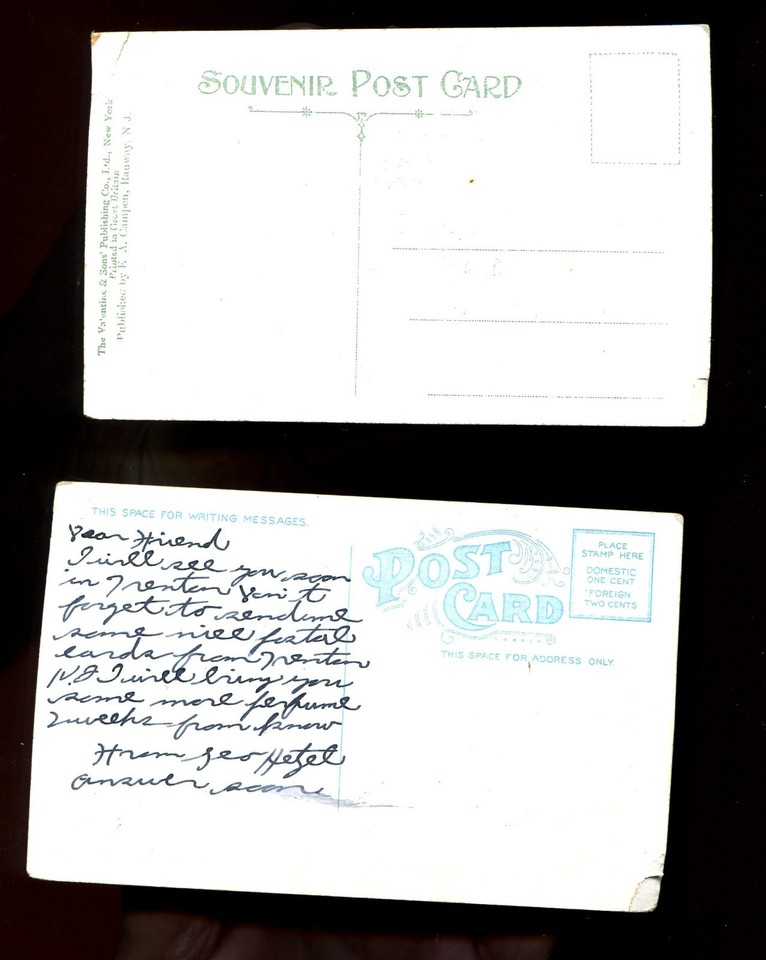 SOUVENIR POST CARD
The Valentine & Sons' Publishing Co., Ltd., New York
Printed in Great Britain
Published by F. A. Campen, Rahway, N. J.
THIS SPACE FOR WRITING MESSAGES.
Dear Friend
I will see you soon
in Trenton Don't
forget to send me
some nice postal
cards from Trenton
N.J I will bring you
some more perfume
2 weeks from know
From Geo Hetzel
answer soon
POST
CARD
PLACE
STAMP HERE
DOMESTIC
ONE CENT
FOREIGN
TWO CENTS
THIS SPACE FOR ADDRESS ONLY.